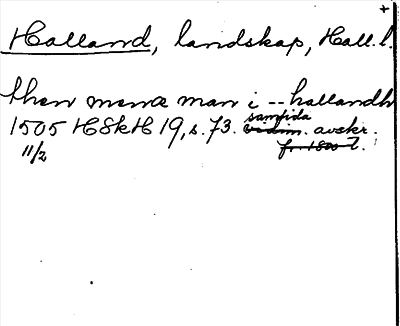 +
Halland, landskap, Hall. l.
then menæ man i -- hallandh
1505 HSkH 19, s. 73. samtida avskr.
11/2